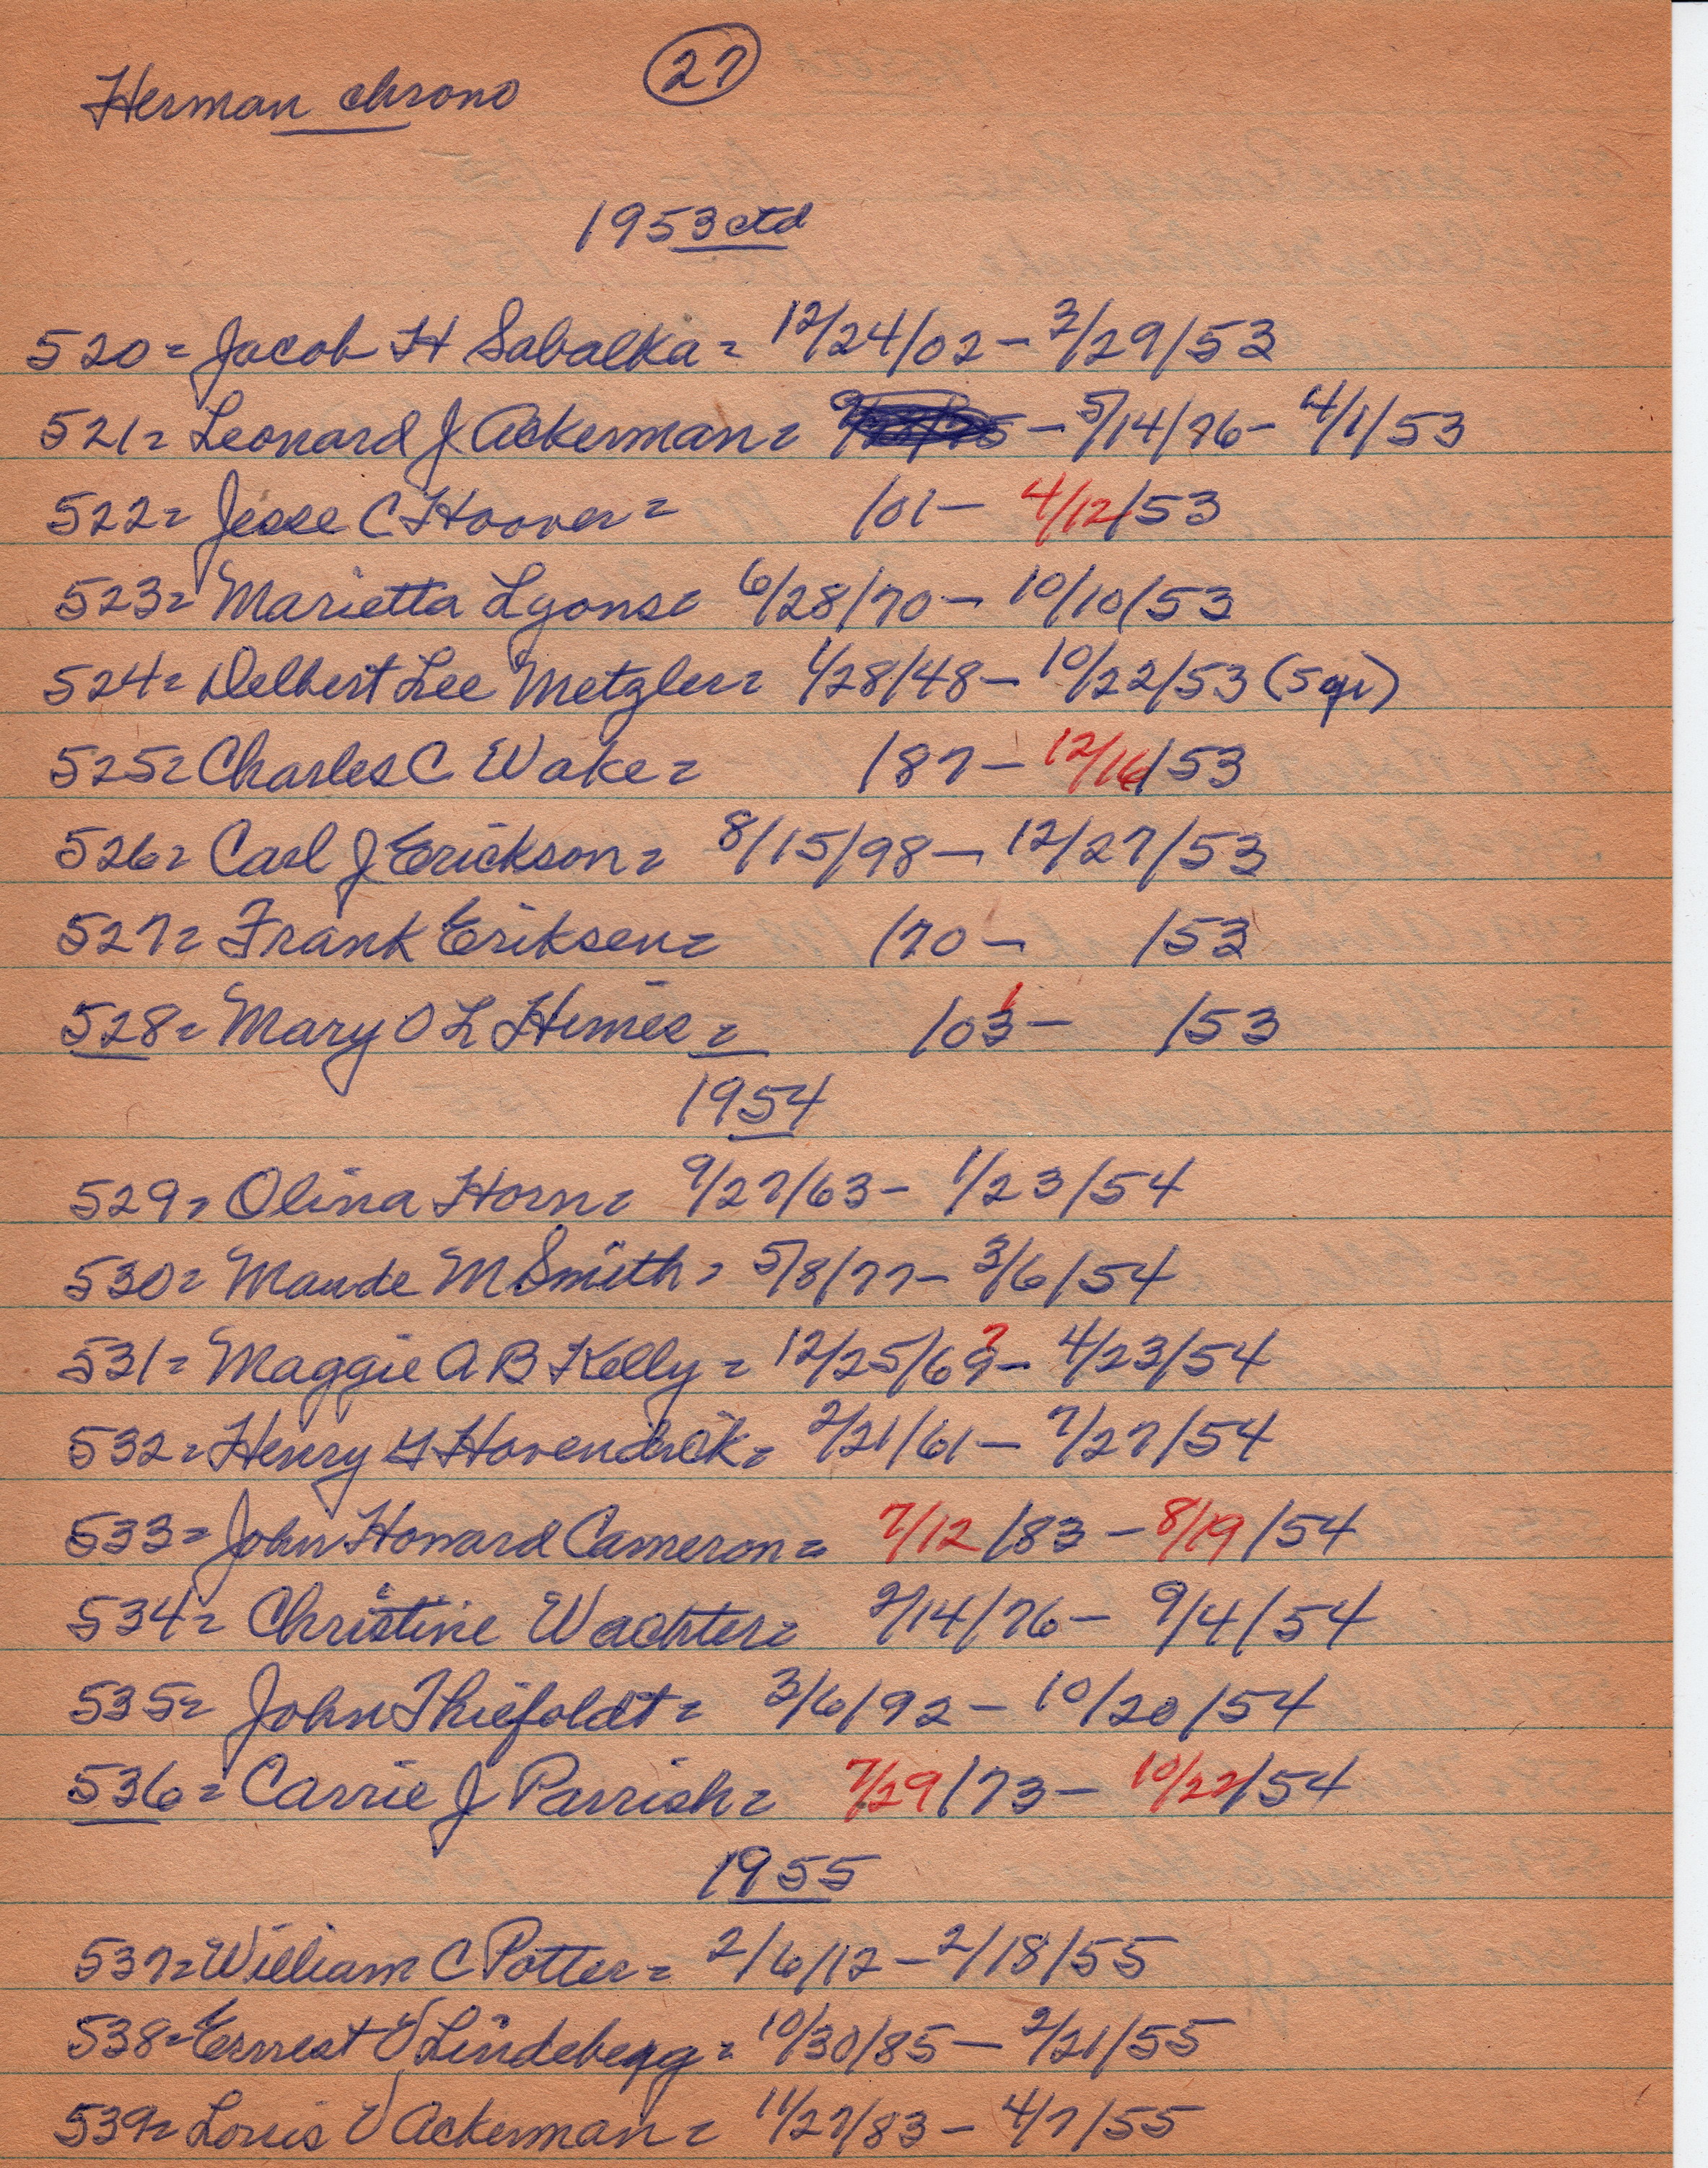 Herman chrono 27
1953 ctd
520= Jacob H Sabalka= 12/24/02 - 3/29/53
521= Leonard J Ackerman= - 5/14/76 - 4/1/53
522= Jesse C Hoover= /01 - 4/12/53
523= Marietta Lyons= 6/28/70 - 10/10/53
524= Delbert Lee Metzler= 1/28/48 - 10/22/53 (5 yr)
525= Charles C Wake= /87 - 12/16/53
526= Carl J Erickson= 8/15/98 - 12/27/53
527= Frank Eriksen= /70 - /53
528= Mary O L Himes= /03 - /53
1954
529= Olina Horn= 9/27/63 - 1/23/54
530= Maude M Smith= 5/8/77 - 3/6/54
531= Maggie A B Kelly= 12/25/69? - 4/23/54
532= Henry Hovendick= 2/21/61 - 7/27/54
533= John Howard Cameron= 7/12/83 - 8/19/54
534= Christine Wachter= 2/14/76 - 9/4/54
535= John Thiefoldt= 3/6/92 - 10/20/54
536= Carrie J Parrish= 7/29/73 - 10/22/54
1955
537= William C Potter= 2/6/12 - 2/18/55
538= Ernest Lindeberg= 10/30/85 - 2/21/55
539= Louis V Ackerman= 11/27/83 - 4/7/55